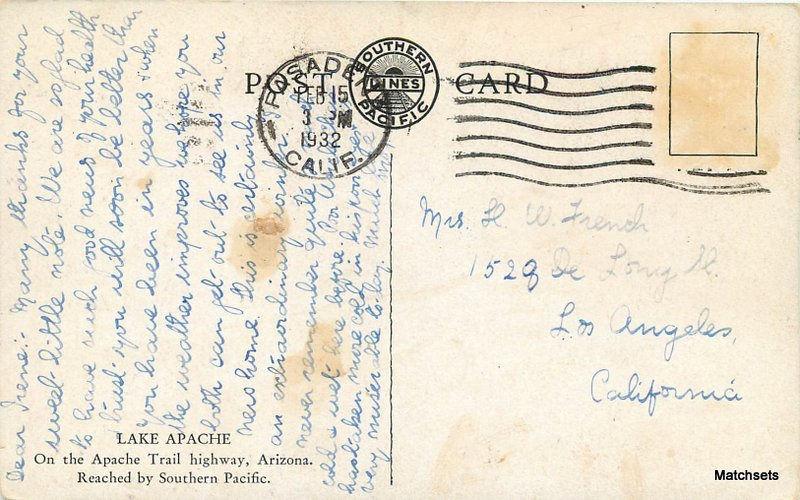 POST CARD
SOUTHERN
LINES
PACIFIC
PASADENA
FEB 15
3 PM
1932
CALIF.
Dear Irene:- Many thanks for your
sweet little note. We are so glad
to have such good news of your health
trust you will soon be better than
you have been in years & when
the weather improves we hope you
both can get out to see us in our
new home. This is certainly
an extraordinary winter
never remember quite so
cold & wet here before.
has taken more cold
very miserable to-day. Much love
Mrs. H. W. French
1529 De Long St.
Los Angeles,
California
LAKE APACHE
On the Apache Trail highway, Arizona.
Reached by Southern Pacific.
Matchsets